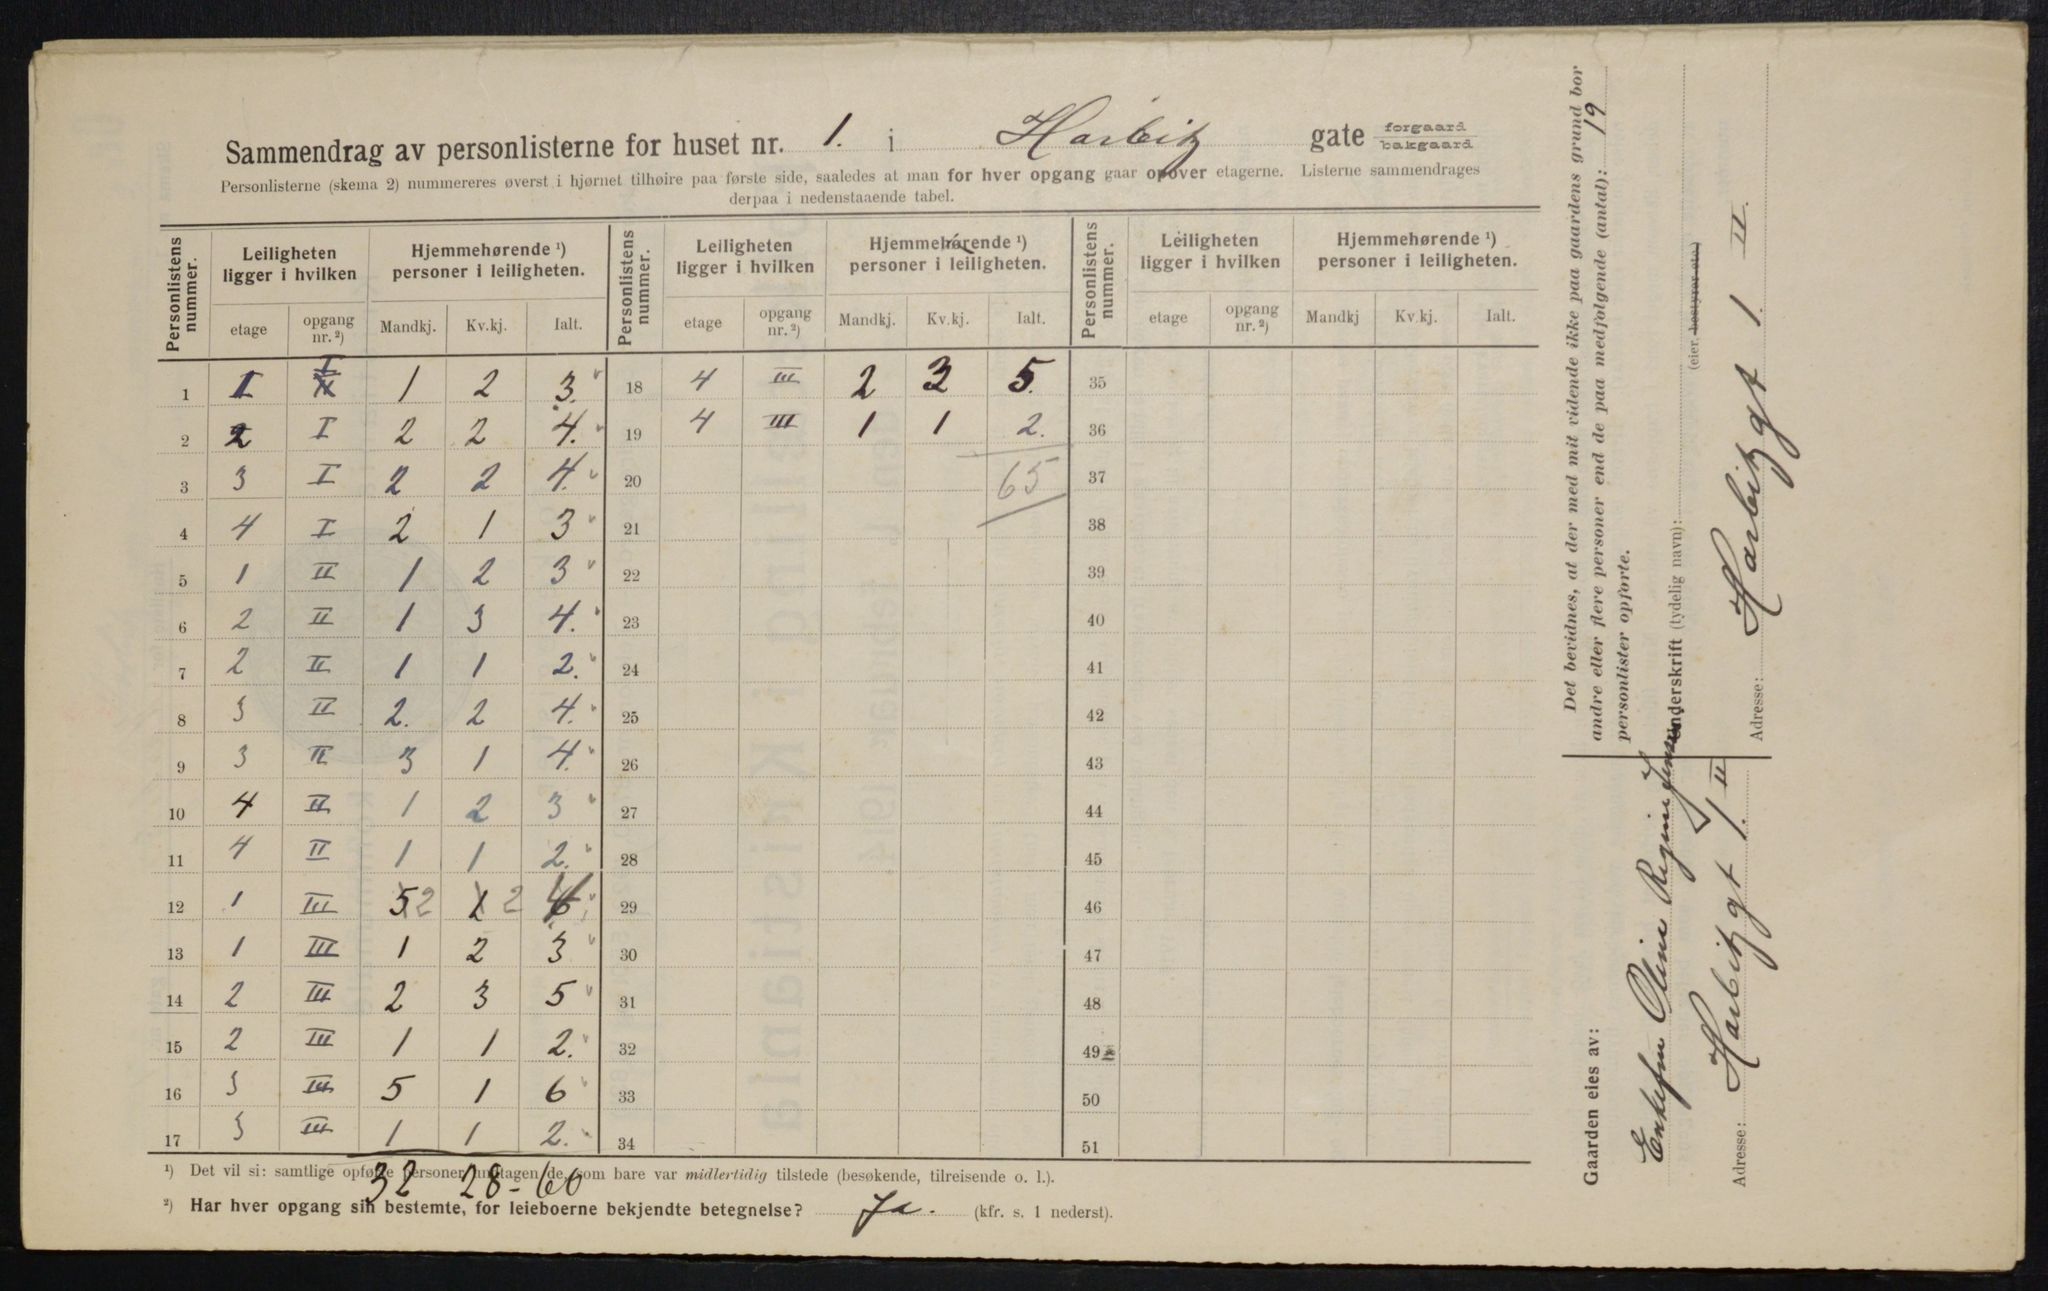 Sammendrag av personlisterne for huset nr. 1. i Harbitz gate forgaard bakgaard
Personlisterne (skema 2) nummereres øverst i hjørnet tilhøire paa første side, saaledes at man for hver opgang gaar opover etagerne. Listerne sammendrages
derpaa i nedenstaaende tabel.
Personlistens nummer. Leiligheten ligger i hvilken Hjemmehørende ¹) personer i leiligheten. Personlistens nummer. Leiligheten ligger i hvilken Hjemmehørende ¹) personer i leiligheten. Personlistens nummer. Leiligheten ligger i hvilken Hjemmehørende ¹) personer i leiligheten.
etage opgang nr. ²) Mandkj. Kv.kj. Ialt. etage opgang nr. ²) Mandkj. Kv.kj. Ialt. etage opgang nr. ²) Mandkj Kv.kj. Ialt.
1 1 I 1 2 3. 18 4 III 2 3 5. 35
2 2 I 2 2 4. 19 4 III 1 1 2. 36
3 3 I 2 2 4. 20 65 37
4 4 I 2 1 3 21 38
5 1 II 1 2 3 22 39
6 2 II 1 3 4. 23 40
7 2 II 1 1 2. 24 41
8 3 II 2. 2 4. 25 42
9 3 II 3 1 4. 26 43
10 4 II 1 2 3 27 44
11 4 II 1 1 2. 28 45
12 1 III 5 2 1 2 4 29 46
13 1 III 1 2 3 30 47
14 2 III 2 3 5 31 48
15 2 III 1 1 2. 32 49
16 3 III 5 1 6 33 50
17 3 III 1 1 2. 34 51
32 28 - 60
¹) Det vil si: samtlige opførte personer undtagen de, som bare var midlertidig tilstede (besøkende, tilreisende o. l.).
²) Har hver opgang sin bestemte, for leieboerne bekjendte betegnelse? Ja. (kfr. s. 1 nederst).
Det bevidnes, at der med mit vidende ikke paa gaardens grund bor
andre eller flere personer end de paa medfølgende (antal): 19
personlister opførte.
Underskrift (tydelig navn):
(eier, bestyrer etc.)
Adresse: Harbitzgt 1. II.
Gaarden eies av:
Enkefru Oline Regine Jensen
Adresse: Harbitzgt 1. II